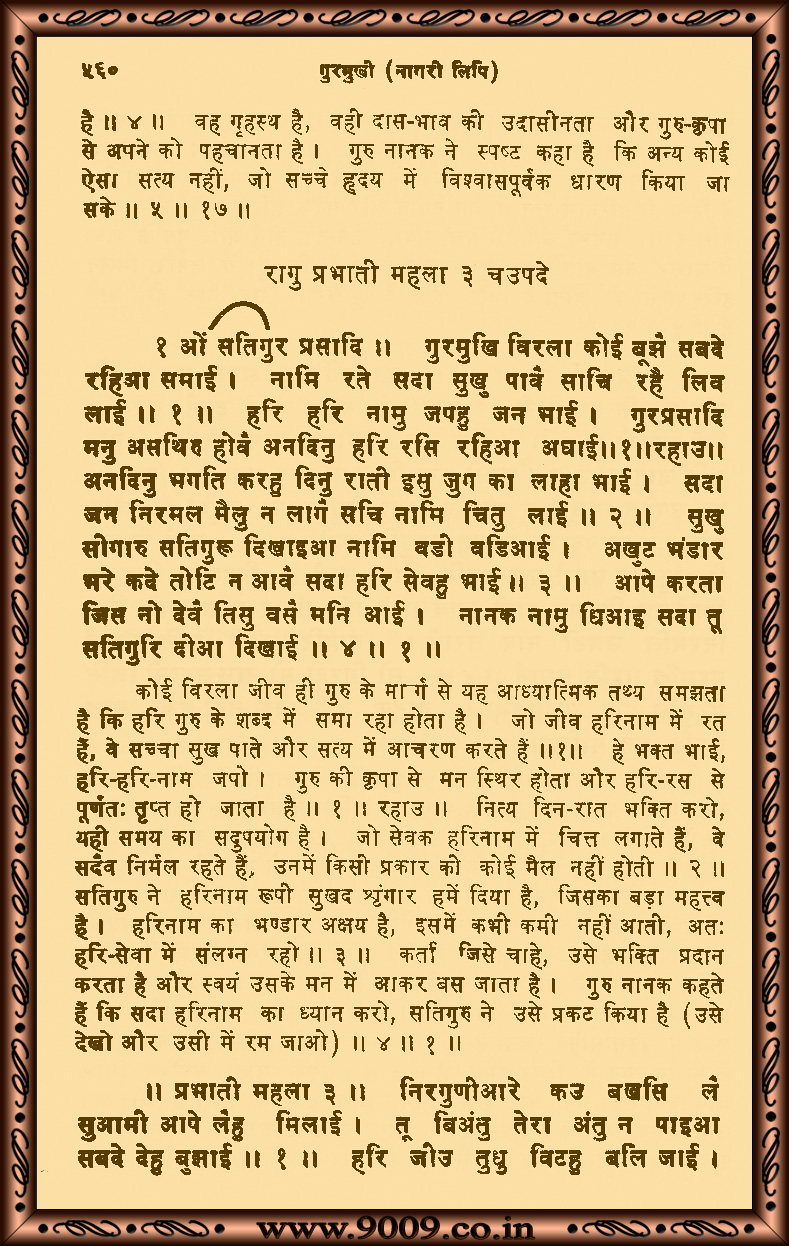 ५६० गुरमुखी (नागरी लिपि)
है ॥ ४ ॥ वह गृहस्थ है, वही दास-भाव की उदासीनता और गुरु-कृपा
से अपने को पहचानता है । गुरु नानक ने स्पष्ट कहा है कि अन्य कोई
ऐसा सत्य नहीं, जो सच्चे हृदय में विश्वासपूर्वक धारण किया जा
सके ॥ ५ ॥ १७ ॥
रागु प्रभाती महला ३ चउपदे
१ ओं सतिगुर प्रसादि ॥ गुरमुखि विरला कोई बूझै सबदे
रहिआ समाई । नामि रते सदा सुखु पावै साचि रहै लिव
लाई ॥ १ ॥ हरि हरि नामु जपहु जन भाई । गुरप्रसादि
मनु असथिरु होवै अनदिनु हरि रसि रहिआ अघाई॥१॥रहाउ॥
अनदिनु भगति करहु दिनु राती इसु जुग का लाहा भाई । सदा
जन निरमल मैलु न लागै सचि नामि चितु लाई ॥ २ ॥ सुखु
सीगारु सतिगुरू दिखाइआ नामि वडी वडिआई । अखुट भंडार
भरे कदे तोटि न आवै सदा हरि सेवहु भाई ॥ ३ ॥ आपे करता
जिस नो देवै तिसु वसै मनि आई । नानक नामु धिआइ सदा तू
सतिगुरि दीआ दिखाई ॥ ४ ॥ १ ॥
कोई विरला जीव ही गुरु के मार्ग से यह आध्यात्मिक तथ्य समझता
है कि हरि गुरु के शब्द में समा रहा होता है । जो जीव हरिनाम में रत
हैं, वे सच्चा सुख पाते और सत्य में आचरण करते हैं ॥१॥ हे भक्त भाई,
हरि-हरि-नाम जपो । गुरु की कृपा से मन स्थिर होता और हरि-रस से
पूर्णतः तृप्त हो जाता है ॥ १ ॥ रहाउ ॥ नित्य दिन-रात भक्ति करो,
यही समय का सदुपयोग है । जो सेवक हरिनाम में चित्त लगाते हैं, वे
सदैव निर्मल रहते हैं, उनमें किसी प्रकार की कोई मैल नहीं होती ॥ २ ॥
सतिगुरु ने हरिनाम रूपी सुखद श्रृंगार हमें दिया है, जिसका बड़ा महत्त्व
है । हरिनाम का भण्डार अक्षय है, इसमें कभी कमी नहीं आती, अतः
हरि-सेवा में संलग्न रहो ॥ ३ ॥ कर्ता जिसे चाहे, उसे भक्ति प्रदान
करता है और स्वयं उसके मन में आकर बस जाता है । गुरु नानक कहते
हैं कि सदा हरिनाम का ध्यान करो, सतिगुरु ने उसे प्रकट किया है (उसे
देखो और उसी में रम जाओ) ॥ ४ ॥ १ ॥
॥ प्रभाती महला ३ ॥ निरगुणीआरे कउ बखसि लै
सुआमी आपे लैहु मिलाई । तू बिअंतु तेरा अंतु न पाइआ
सबदे देहु बुझाई ॥ १ ॥ हरि जीउ तुधु विटहु बलि जाई ।
www.9009.co.in